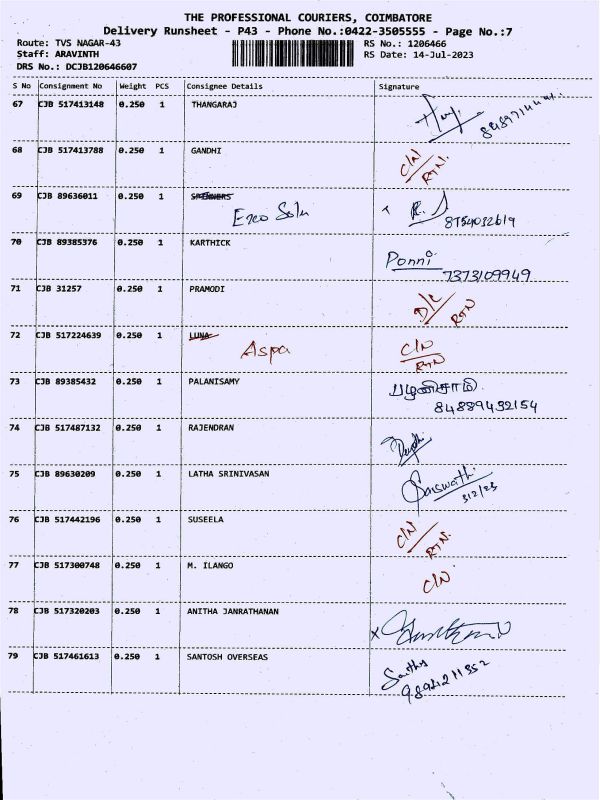 THE PROFESSIONAL COURIERS, COIMBATORE
Delivery Runsheet - P43 - Phone No.:0422-3505555 - Page No.:7
Route: TVS NAGAR-43 RS No.: 1206466
Staff: ARAVINTH RS Date: 14-Jul-2023
DRS No.: DCJB120646607
S No Consignment No Weight PCS Consignee Details Signature
67 CJB 517413148 0.250 1 THANGARAJ
68 CJB 517413788 0.250 1 GANDHI C/N
RTN.
69 CJB 89636011 0.250 1
Ezeo Solu 8754032619
70 CJB 89385376 0.250 1 KARTHICK Ponni
7373109949
71 CJB 31257 0.250 1 PRAMODI D/C
RTN
72 CJB 517224639 0.250 1 LUNA C/N
Aspa RTN
73 CJB 89385432 0.250 1 PALANISAMY பழனிசாமி
84889432154
74 CJB 517487132 0.250 1 RAJENDRAN
75 CJB 89630209 0.250 1 LATHA SRINIVASAN Sarswathi
312/23
76 CJB 517442196 0.250 1 SUSEELA C/N
RTN.
77 CJB 517300748 0.250 1 M. ILANGO C/N
78 CJB 517320203 0.250 1 ANITHA JANRATHANAN x
79 CJB 517461613 0.250 1 SANTOSH OVERSEAS